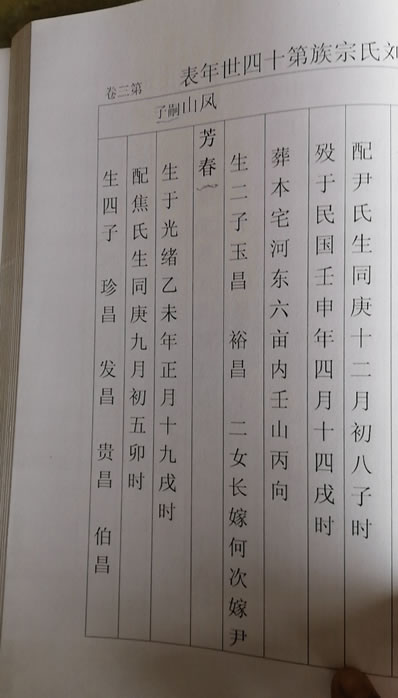 刘氏宗族第十四世年表
第三卷
凤山嗣子
配尹氏生同庚十二月初八子时
殁于民国壬申年四月十四戌时
葬本宅河东六亩内壬山丙向
生二子玉昌 裕昌 二女长嫁何次嫁尹
芳春
生于光绪乙未年正月十九戌时
配焦氏生同庚九月初五卯时
生四子 珍昌 发昌 贵昌 伯昌